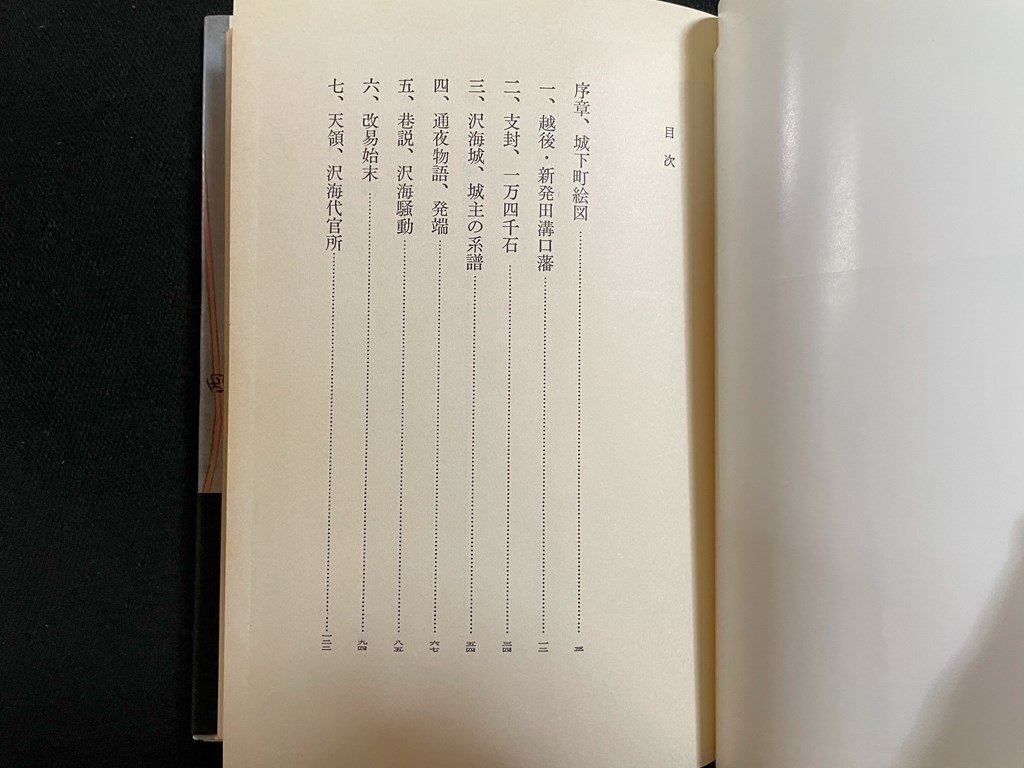 目次
序章、城下町絵図……三
一、越後・新発田溝口藩……一二
二、支封、一万四千石……三四
三、沢海城、城主の系譜……五四
四、通夜物語、発端……六七
五、巷説、沢海騒動……八五
六、改易始末……九四
七、天領、沢海代官所……一二二